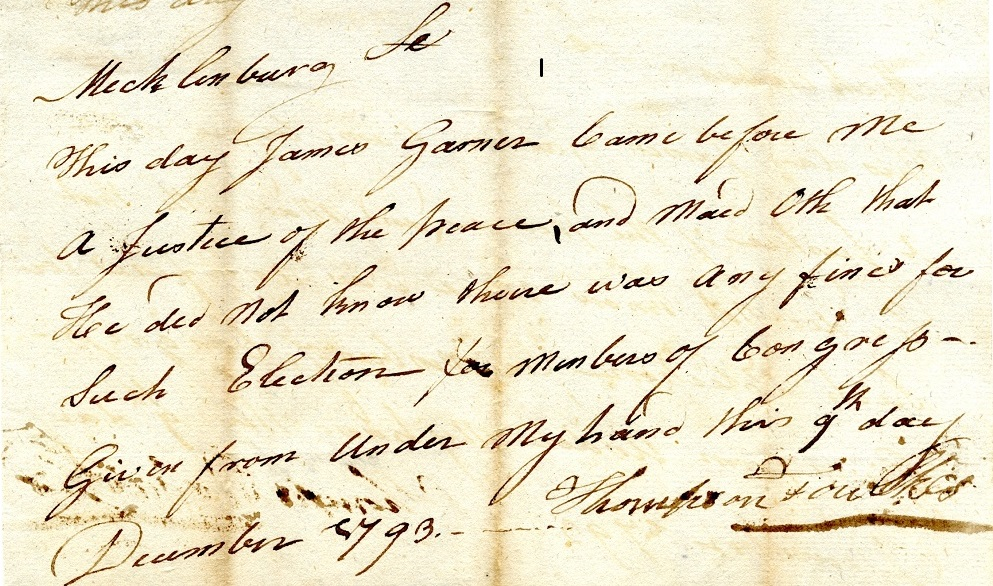 Mecklenburg Sc
This day James Garner Came before Me
A Justice of the peace, and Maid Oth that
He did Not know there was Any fines for
Such Election for Members of Congress -.
Given from Under My hand this 9th day
December 1793.-
Thompson Fowlkes